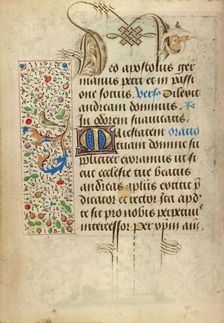 Deo apostolus ger
manus petri et in passi
one socius. Verso Dilexit
andream dominus.
In odorem suauitatis.
Maiestatem oratio
tuam domine su
pliciter exoramus ut si
cut ecclesie tue beatus
andreas aplus extitit p
dicator et rector ita apud
te sit pro nobis perpetuus
intercessor per xpm am